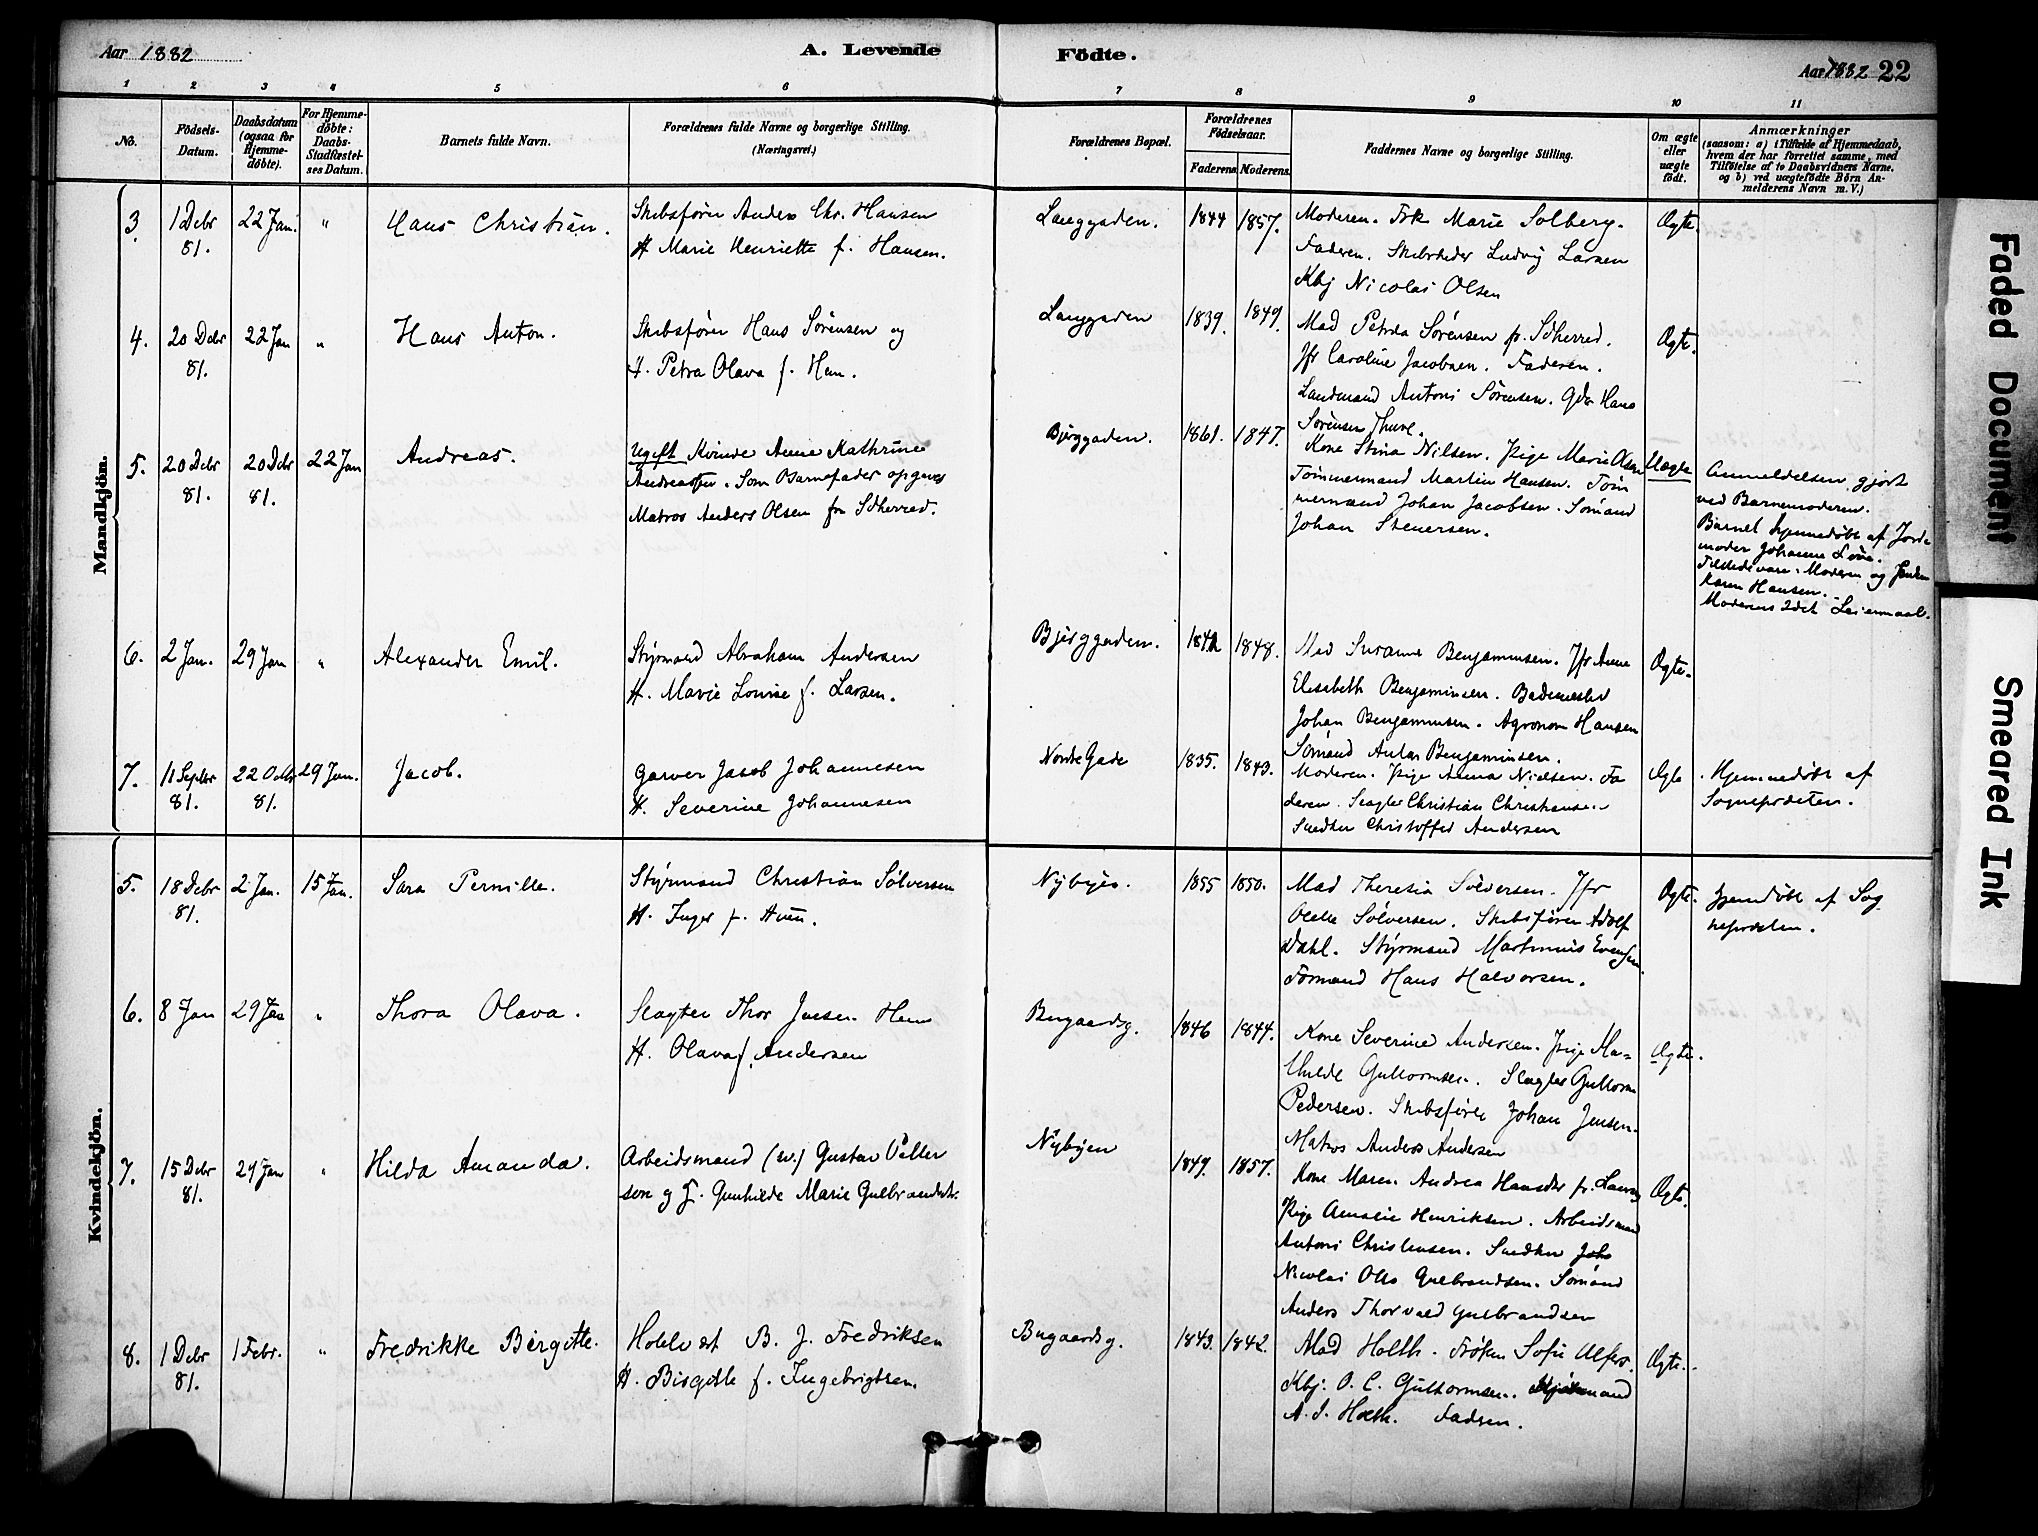 Aar 1882
A. Levende
Födte.
Aar 1882 22
1 2 3 4 5 6 7 8 9 10 11
No.
Födsels-
Datum.
Daabsdatum
(ogsaa for
Hjemme-
döbte).
For Hjemme-
döbte:
Daabs-
Stadfæstel-
ses Datum.
Barnets fulde Navn.
Forældrenes fulde Navne og borgerlige Stilling.
(Næringsvei.)
Forældrenes Bopæl.
Forældrenes
Födselsaar.
Faderens Moderens.
Faddernes Navne og borgerlige Stilling.
Om ægte
eller
uægte
födt.
Anmærkninger
(saasom: a) i Tilfælde af Hjemmedaab,
hvem der har forrettet samme, med
Tilföielse af to Daabsvidners Navne.
og b) ved uægtefödte Börn An-
melderens Navn m. V.)
Mandkjön.
3. 1 Debr 81. 22 Jan. " Hans Christian.
Skibsfører Anders Chr. Hansen
H. Marie Henriette f. Hansen.
Langgaden. 1844 1857.
Moderen. Frk Marie Solberg.
Faderen. Skibsreder Ludvig Larsen
Kbj Nicolai Olsen
Ægte.
4. 20 Debr 81. 22 Jan " Hans Anton.
Skibsfører Hans Sørensen og
H. Petra Olava f. Hem.
Langgaden 1839. 1849.
Mad Petrea Sørensen fr. Sdherred.
Jfr Caroline Jacobsen. Faderen.
Landmand Antoni Sørensen. Gdr Hans
Sørensen Thure.
Ægte.
5. 20 Debr 81. 20 Debr 81. 22 Jan Andreas.
Ugift Kvinde Anne Kathrine
Andreasen. Som Barnefader opgives
Matros Anders Olsen fra Sdherred.
Bjerggaden. 1861. 1847.
Kone Stina Nilsen. Pige Marie Olsen
Tømmermand Martin Hansen. Tøm
mermand Johan Jacobsen. Sømand
Johan Stenersen.
Uægte
Anmeldelsen gjort
ved Barnemoderen.
Barnet hjemmedøbt af Jorde
moder Johanne
Tilstede vare: Moderen og
Karen Hansen.
Moderens 2det Leiermaal.
6. 2 Jan. 29 Jan " Alexander Emil.
Styrmand Abraham Andersen
H. Marie Louise f. Larsen.
Bjerggaden. 1842 1848.
Mad Susanne Benjaminsen. Jfr Anne
Elisabeth Benjaminsen. Bademester
Johan Benjaminsen. Agronom Hansen
Sømand Anton Benjaminsen.
Ægte.
7. 11 Septbr 81. 22 Octbr 81. 29 Jan. Jacob.
Garver Jacob Johannesen
H. Severine Johannesen
Nordre Gade 1835. 1843.
Moderen. Pige Anna Nielsen. Fa
deren. Slagter Christian Christiansen.
Snedker Christoffer Andersen
Ægte
Hjemmedøbt af
Sognepræsten.
Kvindekjön.
5. 18 Debr 81. 2 Jan. 15 Jan. Sara Pernille.
Styrmand Christian Sølversen
H. Inger f.
Nybyen. 1855 1850.
Mad Theresia Sølversen. Jfr
Olette Sølversen. Skibsfører Adolf
Dahl. Styrmand Martinius Evensen.
Formand Hans Halvorsen.
Ægte.
Hjemdøbt af Sog
nepræsten.
6. 8 Jan 29 Jan " Thora Olava.
Slagter Thor Jensen Hem
H. Olava f. Andersen
Bugaardsg. 1846 1844.
Kone Severine Andersen. Pige Ma-
thilde Guttormsen. Slagter Guttorm
Pedersen. Skibsfører Johan Jensen.
Matros Anders Andersen
Ægte.
7. 15 Debr 81. 29 Jan " Hilda Amanda.
Arbeidsmand (sv.) Gustav
sen og H. Gunhilde Marie Gulbrandsdr.
Nybyen 1849. 1857.
Kone Maren Andrea Hansdtr fr. Laurvig
Pige Amalie Henriksen. Arbeidsmand
Antoni Christensen. Snedker Johs
Nicolai Olis Gulbrandsen. Sømand
Anders Thorvald Gulbrandsen
Ægte.
8. 1 Debr 81. 1 Febr. " Fredrikke Birgitte.
Hotelvært B. J. Fredriksen
H. Birgitte f. Ingebrigtsen.
Bugaardsg. 1843. 1842.
Mad Holth. Frøken Sofie
Kbj. O. C. Guttormsen.
A. J. Holth. Faderen.
Ægte.
Faded Document
Smeared Ink